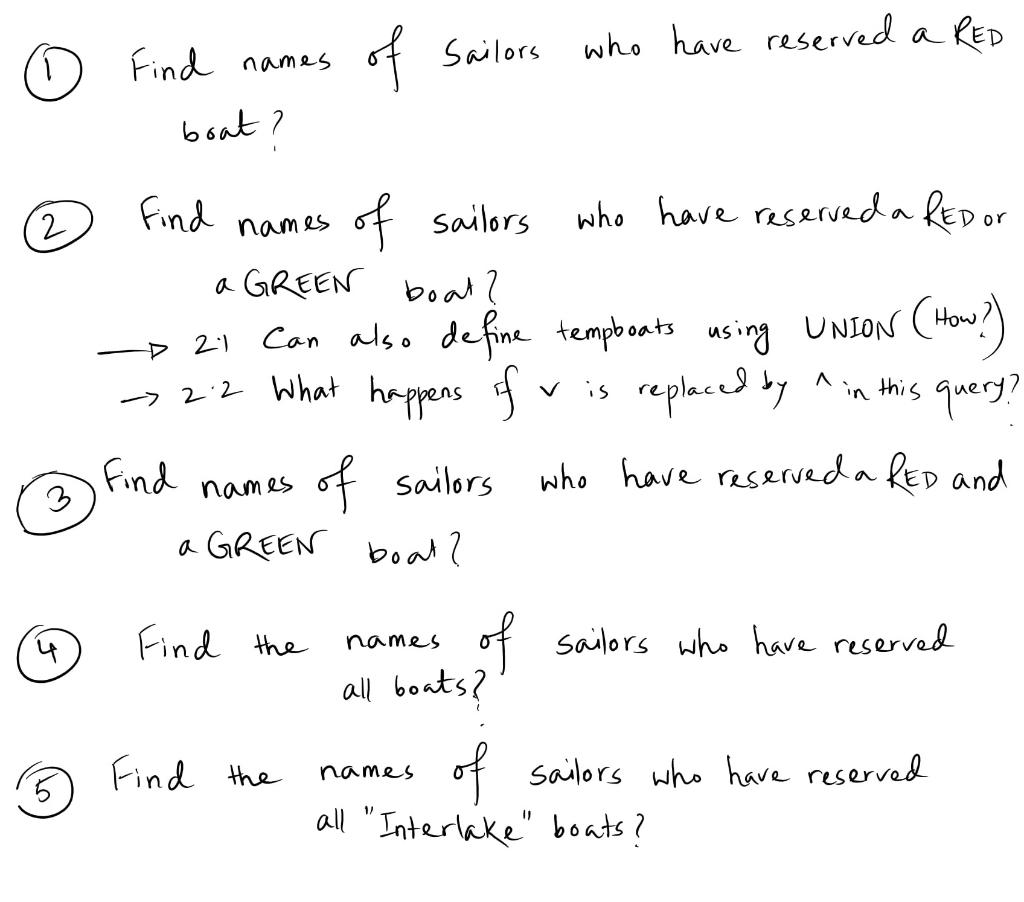 ① Find names of Sailors who have reserved a RED
boat?
② Find names of sailors who have reserved a RED or
a GREEN boat?
→ 2.1 Can also define tempboats using UNION (How?)
→ 2.2 What happens if v is replaced by ^ in this query?
③ Find names of sailors who have reserved a RED and
a GREEN boat?
④ Find the names of sailors who have reserved
all boats?
⑤ Find the names of sailors who have reserved
all "Interlake" boats?